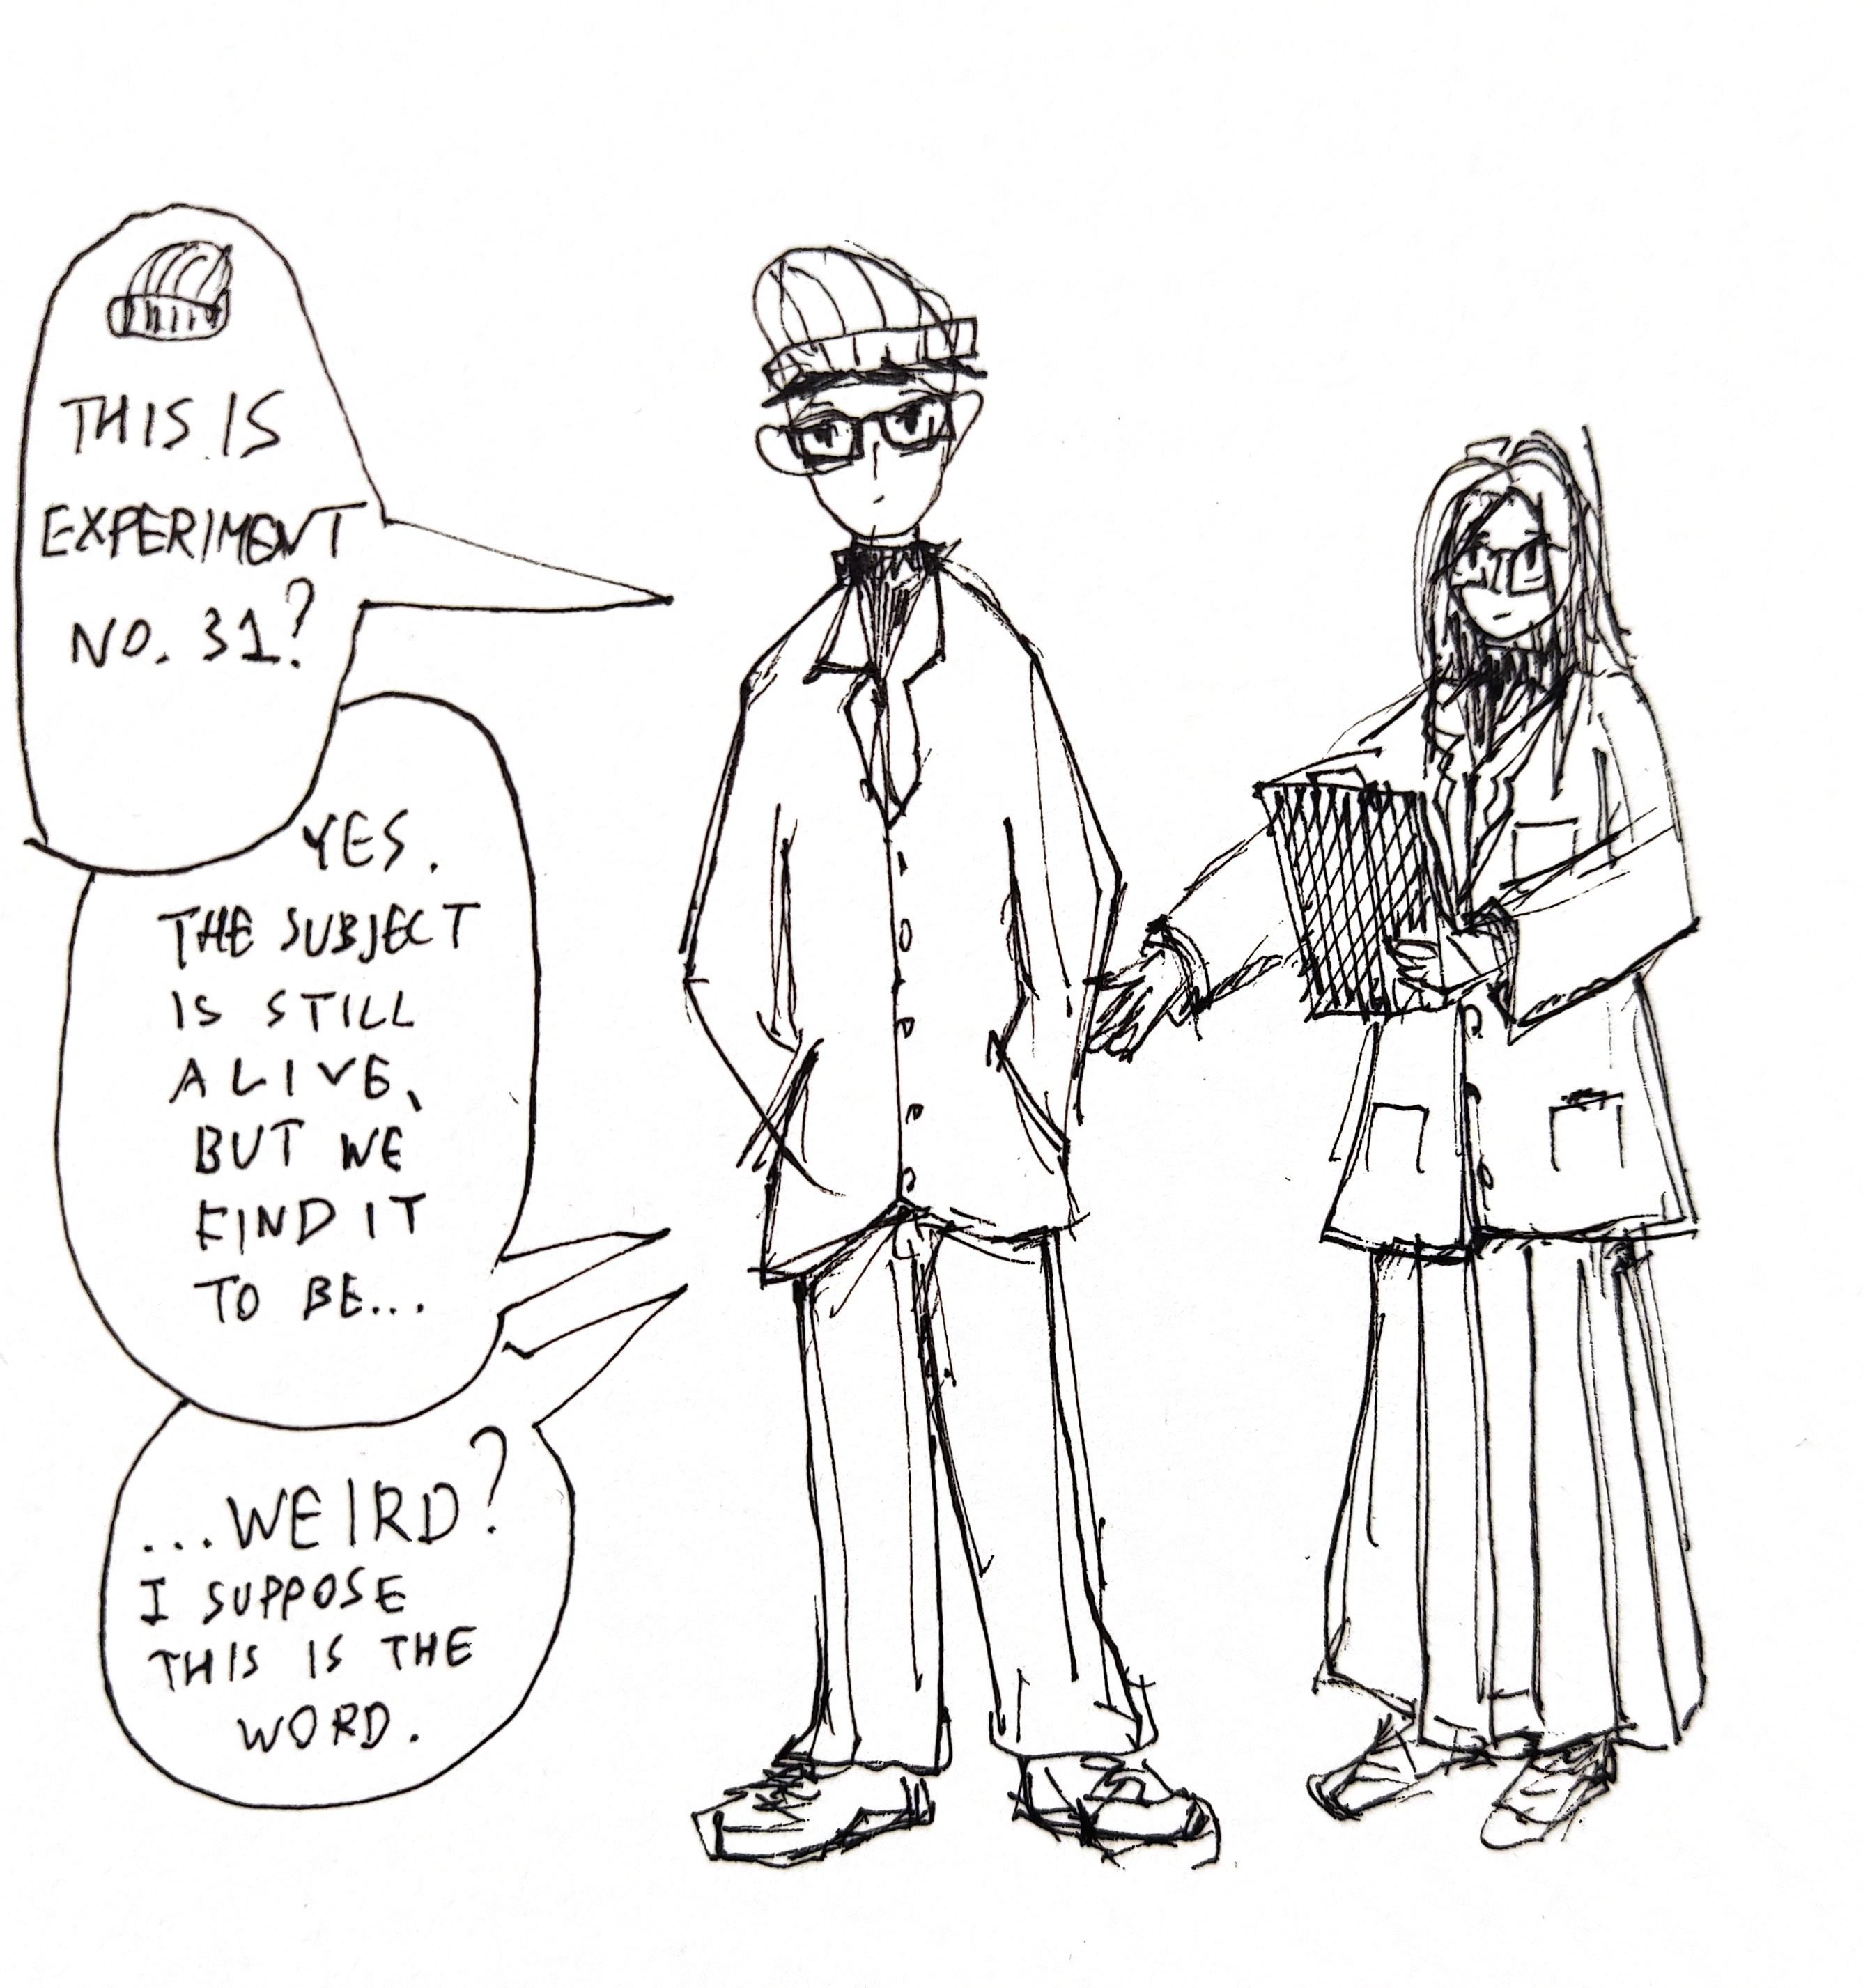 THIS IS
EXPERIMENT
NO. 31?
YES.
THE SUBJECT
IS STILL
ALIVE,
BUT WE
FIND IT
TO BE...
...WEIRD?
I SUPPOSE
THIS IS THE
WORD.